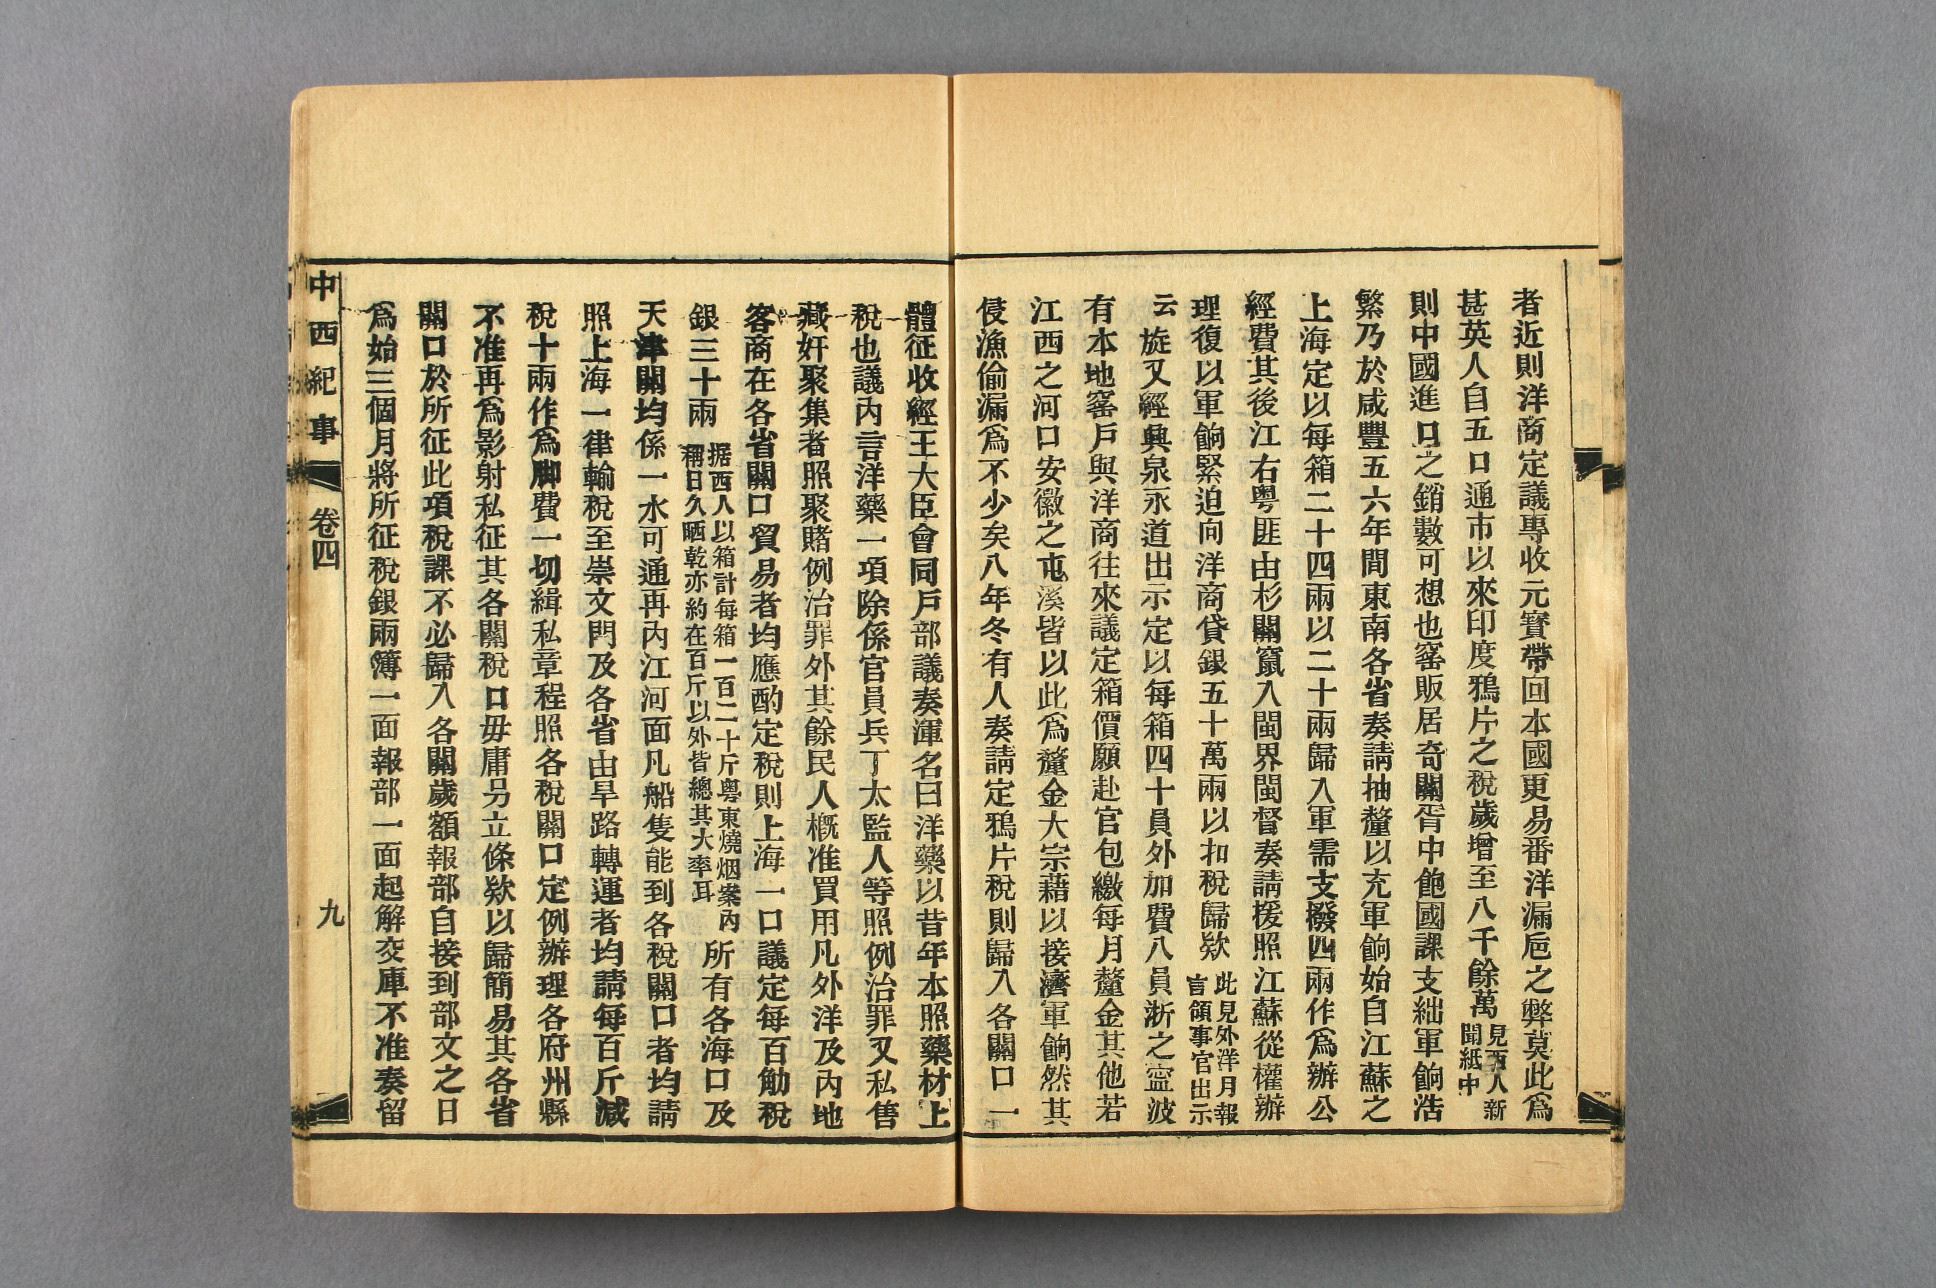 者近則洋商定議專收元寶帶回本國更易番洋漏卮之弊莫此爲
甚英人自五口通市以來印度鴉片之稅歲增至八千餘萬見西人新聞紙中
則中國進口之銷數可想也窰販居奇關胥中飽國課支絀軍餉浩
繁乃於咸豐五六年間東南各省奏請抽釐以充軍餉始自江蘇之
上海定以每箱二十四兩以二十兩歸入軍需支撥四兩作爲辦公
經費其後江右粵匪由杉關竄入閩界閩督奏請援照江蘇從權辦
理復以軍餉緊迫向洋商貸銀五十萬兩以扣稅歸欵此見外洋月報言領事官出示
云旋又經興泉永道出示定以每箱四十員外加費八員浙之寍波
有本地窰戶與洋商往來議定箱價願赴官包繳每月釐金其他若
江西之河口安徽之屯溪皆以此爲釐金大宗藉以接濟軍餉然其
侵漁偷漏爲不少矣八年冬有人奏請定鴉片稅則歸入各關口一
體征收經王大臣會同戶部議奏渾名曰洋藥以昔年本照藥材上
稅也議內言洋藥一項除係官員兵丁太監人等照例治罪又私售
藏奸聚集者照聚賭例治罪外其餘民人槪准買用凡外洋及內地
客商在各省關口貿易者均應酌定稅則上海一口議定每百觔稅
銀三十兩据西人以箱計每箱一百二十斤粵東燒烟案內稱日久晒乾亦約在百斤以外皆總其大率耳所有各海口及
天津關均係一水可通再內江河面凡船隻能到各稅關口者均請
照上海一律輸稅至崇文門及各省由旱路轉運者均請每百斤減
稅十兩作爲脚費一切緝私章程照各稅關口定例辦理各府州縣
不准再爲影射私征其各關稅口毋庸另立條欵以歸簡易其各省
關口於所征此項稅課不必歸入各關歲額報部自接到部文之日
爲始三個月將所征稅銀兩簿一面報部一面起解交庫不准奏留
中西紀事
卷四
九